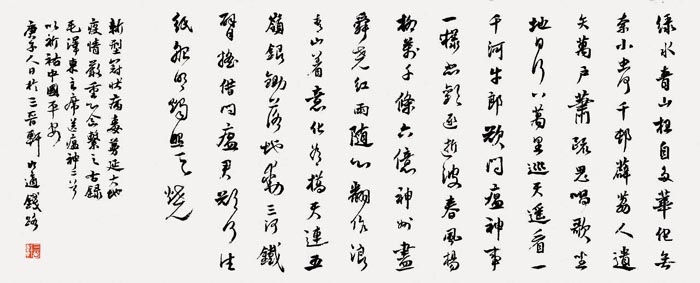 绿水青山枉自多華佗無
奈小虫何千邨薜荔人遺
矢萬户蕭疏鬼唱歌坐
地日行八萬里巡天遥看一
千河牛郎欲问瘟神事
一樣悲歡逐逝波春風楊
柳萬千條六億神州盡
舜堯红雨随心翻作浪
青山着意化為橋天連五
嶺銀鋤落地動三河鐵
臂摇借问瘟君欲何往
纸船明燭照天燒
新型冠状病毒蔓延大地
疫情嚴重心念繫之録
毛澤東主席送瘟神二首
以祈祐中國平安
庚子人日於三軒錢路